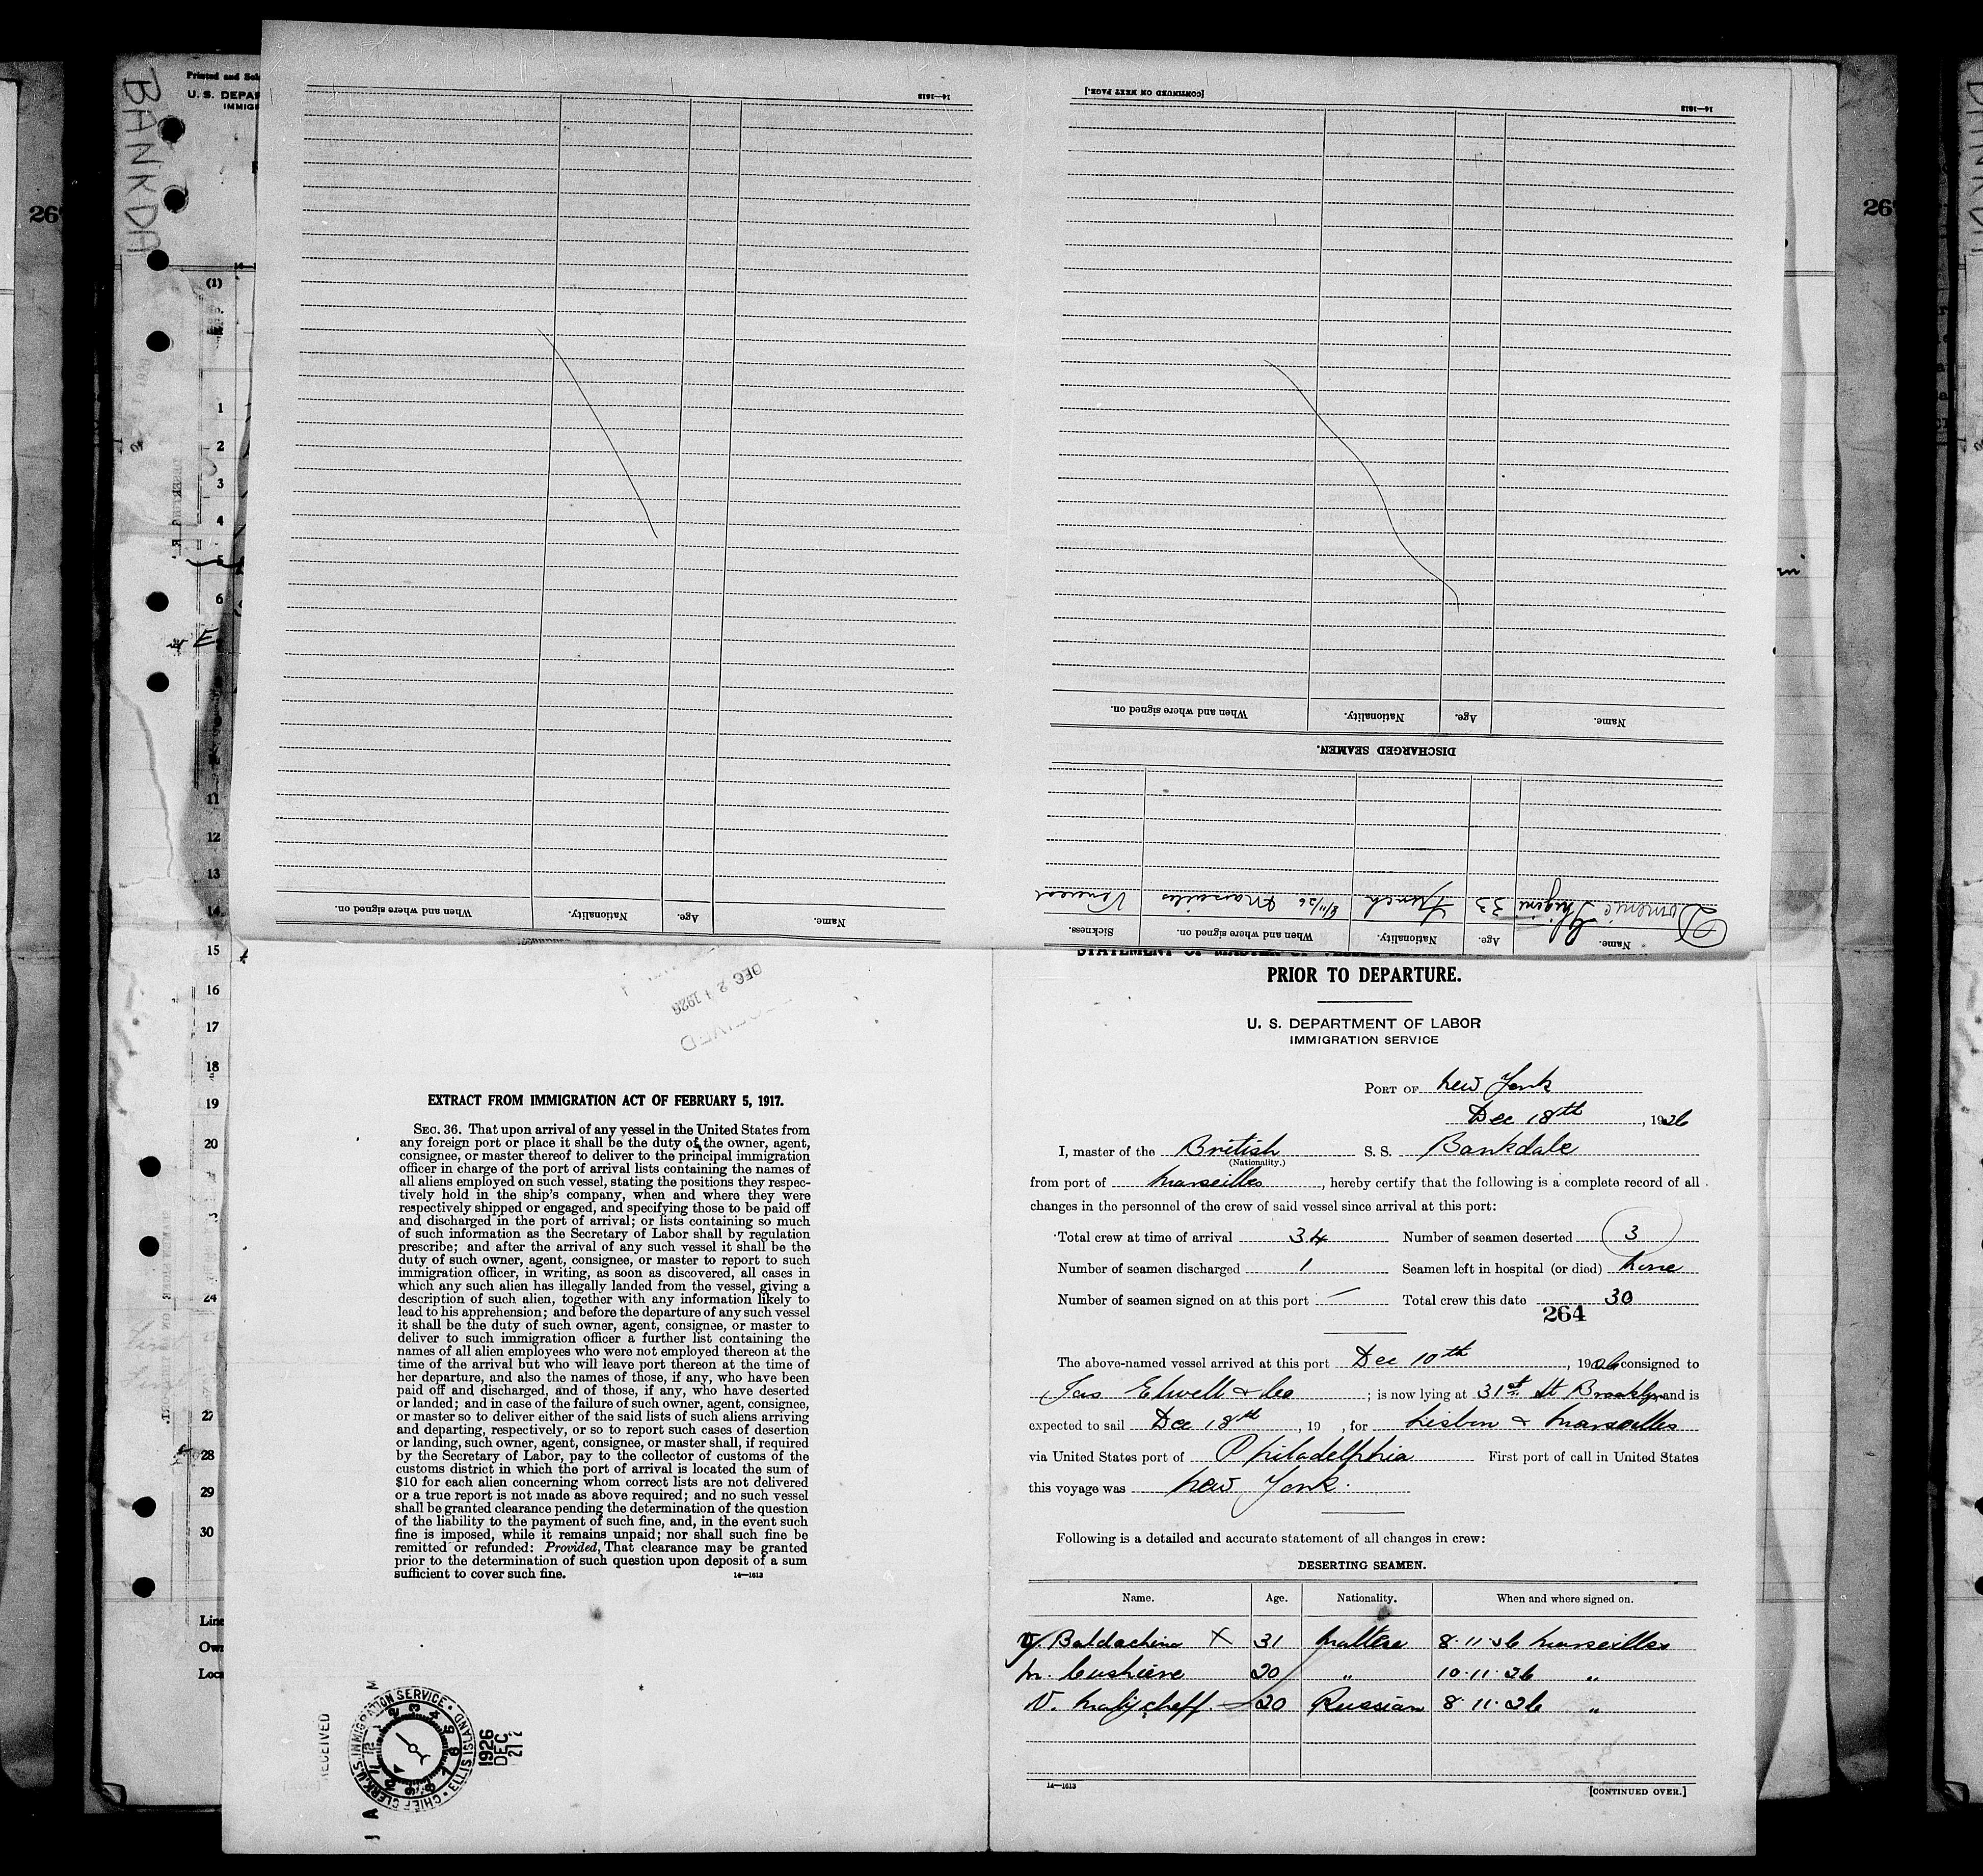 BANKDA
Printed and Sold
U. S. DEPAR
IMMIGR
(1)
1
2
3
4
5
6
11
12
13
14
15
16
17
18
19
20
24
27
28
29
30
Line
Own
Loca
26
26
14—1613
Name. Age. Nationality. When and where signed on.
Name. Age. Nationality. When and where signed on. Sickness.
Domenic 33 French 8/11/26 Marseilles
DISCHARGED SEAMEN.
Name. Age. Nationality. When and where signed on.
14—1613 [CONTINUED ON NEXT PAGE.]
DEC 21 1926
EXTRACT FROM IMMIGRATION ACT OF FEBRUARY 5, 1917.
SEC. 36. That upon arrival of any vessel in the United States from
any foreign port or place it shall be the duty of the owner, agent,
consignee, or master thereof to deliver to the principal immigration
officer in charge of the port of arrival lists containing the names of
all aliens employed on such vessel, stating the positions they respec-
tively hold in the ship's company, when and where they were
respectively shipped or engaged, and specifying those to be paid off
and discharged in the port of arrival; or lists containing so much
of such information as the Secretary of Labor shall by regulation
prescribe; and after the arrival of any such vessel it shall be the
duty of such owner, agent, consignee, or master to report to such
immigration officer, in writing, as soon as discovered, all cases in
which any such alien has illegally landed from the vessel, giving a
description of such alien, together with any information likely to
lead to his apprehension; and before the departure of any such vessel
it shall be the duty of such owner, agent, consignee, or master to
deliver to such immigration officer a further list containing the
names of all alien employees who were not employed thereon at the
time of the arrival but who will leave port thereon at the time of
her departure, and also the names of those, if any, who have been
paid off and discharged, and of those, if any, who have deserted
or landed; and in case of the failure of such owner, agent, consignee,
or master so to deliver either of the said lists of such aliens arriving
and departing, respectively, or so to report such cases of desertion
or landing, such owner, agent, consignee, or master shall, if required
by the Secretary of Labor, pay to the collector of customs of the
customs district in which the port of arrival is located the sum of
$10 for each alien concerning whom correct lists are not delivered
or a true report is not made as above required; and no such vessel
shall be granted clearance pending the determination of the question
of the liability to the payment of such fine, and, in the event such
fine is imposed, while it remains unpaid; nor shall such fine be
remitted or refunded: Provided, That clearance may be granted
prior to the determination of such question upon deposit of a sum
sufficient to cover such fine.
14—1613
RECEIVED
U.S. IMMIGRATION SERVICE · ELLIS ISLAND · CHIEF CLERK
1926
DEC
21
STATEMENT OF MASTER OF
PRIOR TO DEPARTURE.
U. S. DEPARTMENT OF LABOR
IMMIGRATION SERVICE
PORT OF New York
Dec 18th, 1926
I, master of the British S. S. Bankdale
(Nationality.)
from port of Marseilles, hereby certify that the following is a complete record of all
changes in the personnel of the crew of said vessel since arrival at this port:
Total crew at time of arrival 34 Number of seamen deserted 3
Number of seamen discharged 1 Seamen left in hospital (or died) None
Number of seamen signed on at this port — Total crew this date 30
264
The above-named vessel arrived at this port Dec 10th, 1926 consigned to
Jas Elwell & Co; is now lying at 31st St Brooklyn and is
expected to sail Dec 18th, 19 , for Lisbon & Marseilles
via United States port of Philadelphia First port of call in United States
this voyage was New York.
Following is a detailed and accurate statement of all changes in crew:
DESERTING SEAMEN.
Name. Age. Nationality. When and where signed on.
Baldachino X 31 Maltese 8.11.26 Marseilles
M. Cushiere 20 " 10.11.26 "
N. 20 Russian 8.11.26 "
14—1613
[CONTINUED OVER.]